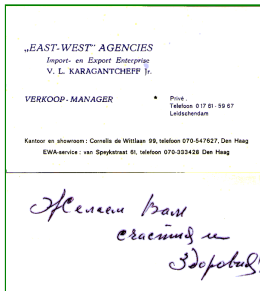 „EAST-WEST" AGENCIES
Import- en Export Enterprise
V. L. KARAGANTCHEFF Jr.
VERKOOP - MANAGER
Privé.
Telefoon 01761 - 5967
Leidschendam
Kantoor en showroom : Cornelis de Wittlaan 99, telefoon 070-547627, Den Haag
EWA-service : van Speykstraat 61, telefoon 070-333428 Den Haag
Желаем Вам
счастия и
Здоровия!